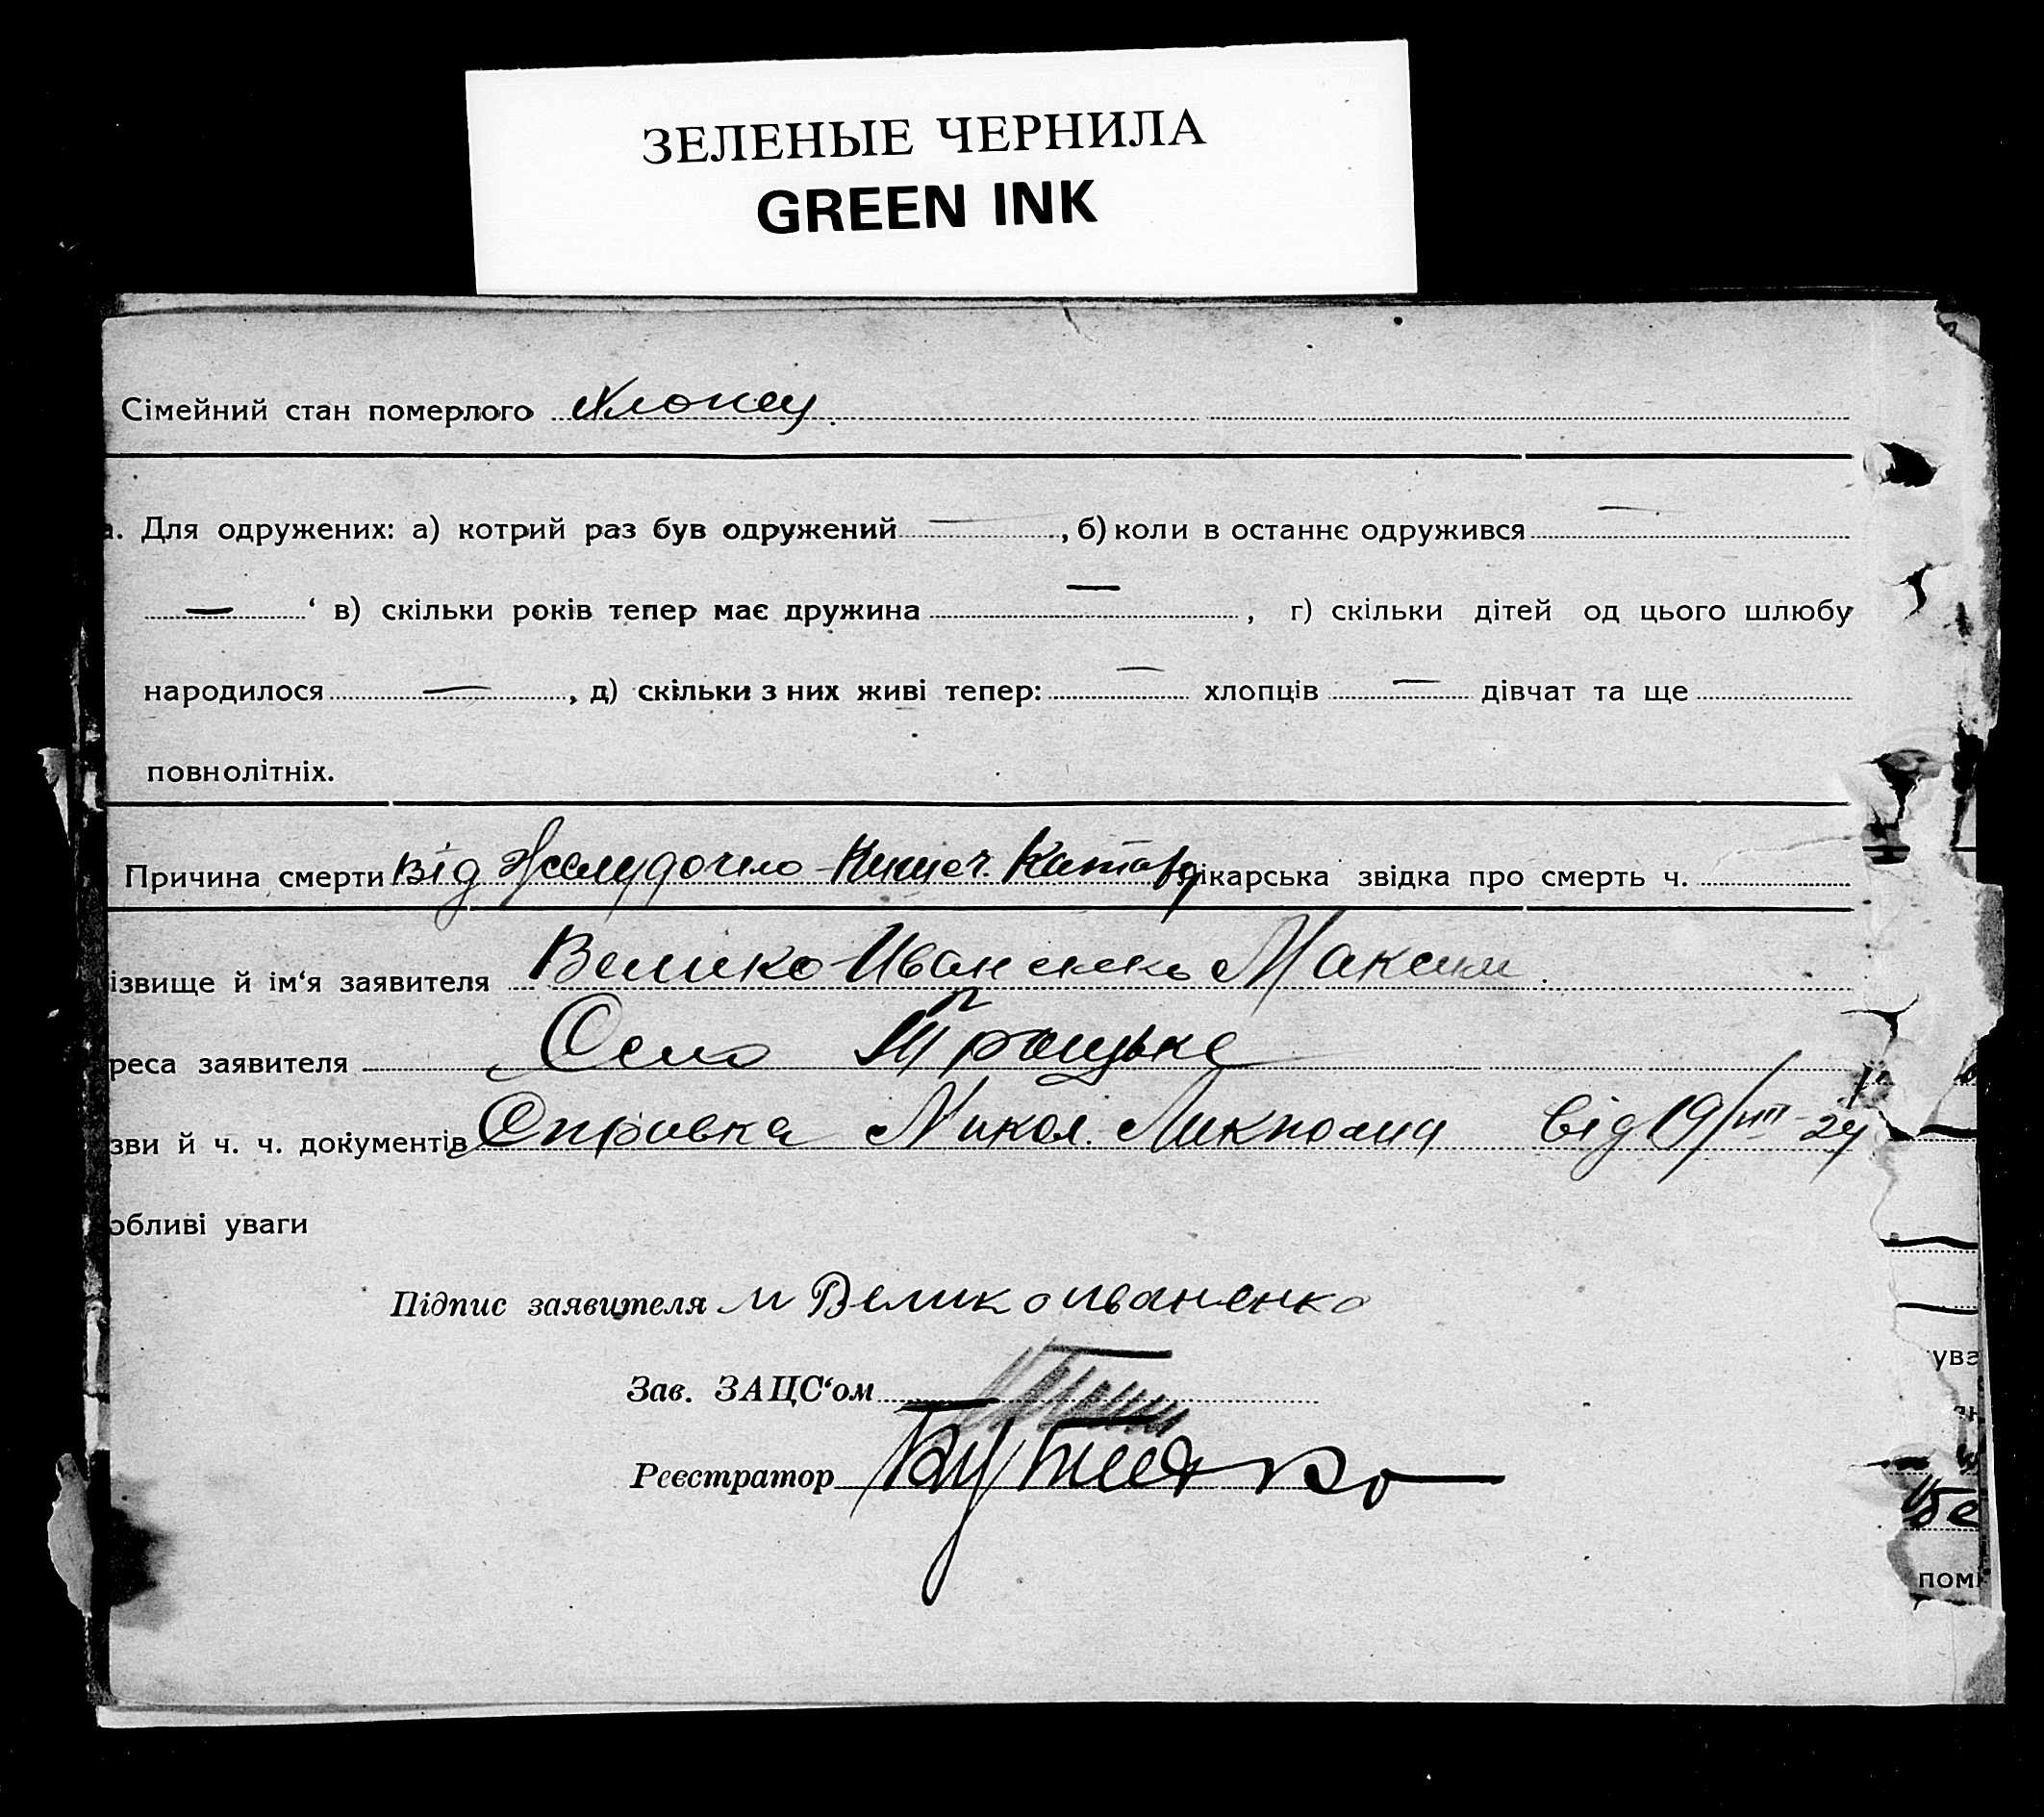 ЗЕЛЕНЫЕ ЧЕРНИЛА
GREEN INK
Сімейний стан померлого Хлопец
а. Для одружених: а) котрий раз був одружений —, б) коли в останнє одружився —
— ‘ в) скільки років тепер має дружина —, г) скільки дітей од цього шлюбу
народилося —, д) скільки з них живі тепер: — хлопців — дівчат та ще
повнолітніх.
Причина смерти від Желудочно-Кишеч. Катара лікарська звідка про смерть ч.
ізвище й ім‘я заявителя Велико-Иваненко Максим
реса заявителя Село Троицьке
зви й ч. ч. документів Справка Микол. від 19/VIII-24
обливі уваги
Підпис заявителя М Великоиваненко
Зав. ЗАЦС‘ом
Реєстратор
ува
помі